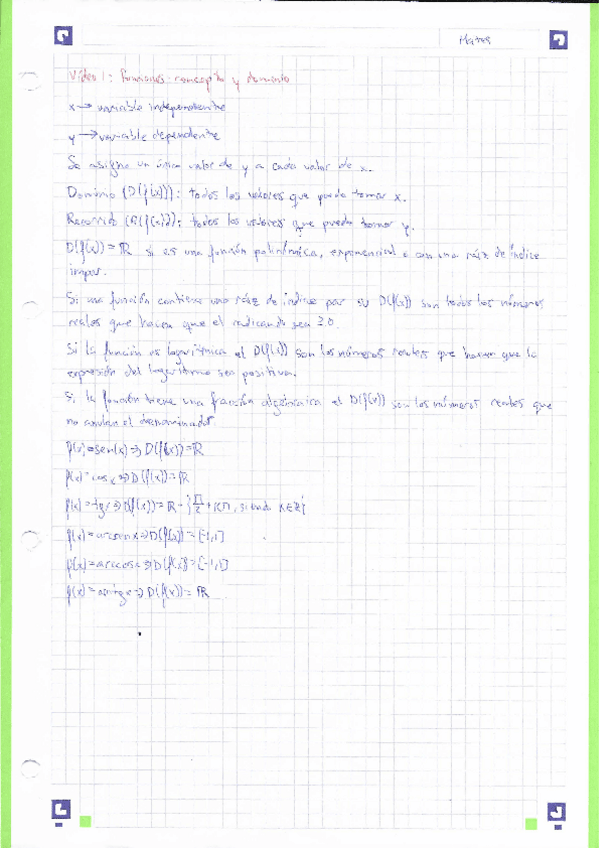 Mates
Vídeo 1: Funciones: concepto y dominio
x → variable independiente
y → variable dependiente
Se asigna un único valor de y a cada valor de x.
Dominio (D(f(x))): todos los valores que puede tomar x.
Recorrido (R(f(x))): todos los valores que puede tomar y.
D(f(x)) = ℝ si es una función polinómica, exponencial o con una raíz de índice
impar.
Si una función contiene una raíz de índice par su D(f(x)) son todos los números
reales que hacen que el radicando sea ≥0.
Si la función es logarítmica el D(f(x)) son los números reales que hacen que la
expresión del logaritmo sea positiva.
Si la función tiene una fracción algebraica el D(f(x)) son los números reales que
no anulan el denominador.
f(x)=sen(x)⇒D(f(x))=ℝ
f(x)=cosx⇒D(f(x))=ℝ
f(x)=tgx⇒D(f(x))=ℝ-{π/2+Kπ, siendo K∈ℤ}
f(x)=arcsenx⇒D(f(x))=[-1,1]
f(x)=arccosx⇒D(f(x))=[-1,1]
f(x)=arctgx⇒D(f(x))=ℝ